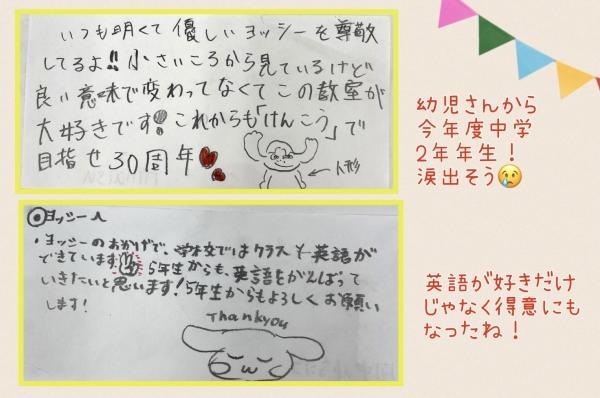 いつも明くて優しいヨッシーを尊敬
してるよ!!小さいころから見ているけど
良い意味で変わってなくてこの教室が
大好きです!これからも「けんこう」で
目指せ30周年
人形
幼児さんから
今年度中学
2年年生!
涙出そう😢
◎ヨッシーへ
・ヨッシーのおかげで、学校ではクラス1英語が
できています 5年生からも、英語をがんばって
いきたいと思います!5年生からもよろしくお願い
します!
Thankyou
英語が好きだけ
じゃなく得意にも
なったね!